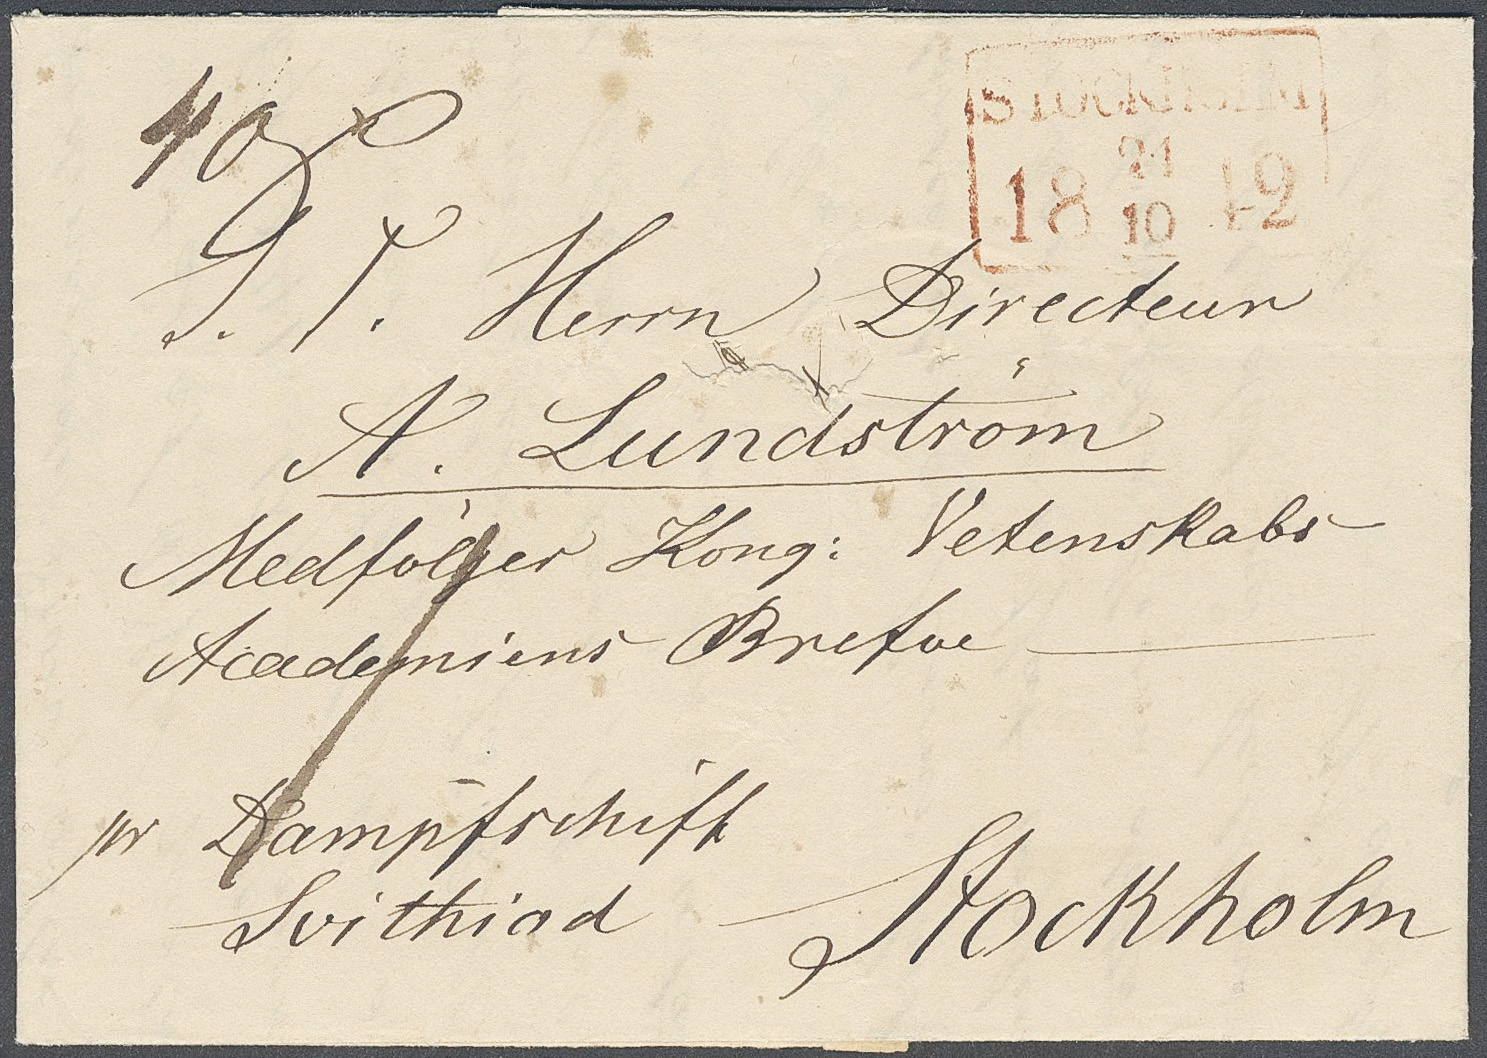 STOCKHOLM
21
18 42
10
S. T. Herrn Directeur
A. Lundström
Medfölljer Kong: Vetenskabs
Academiens Brefve
pr Dampfschiff
Svithiod
Stockholm